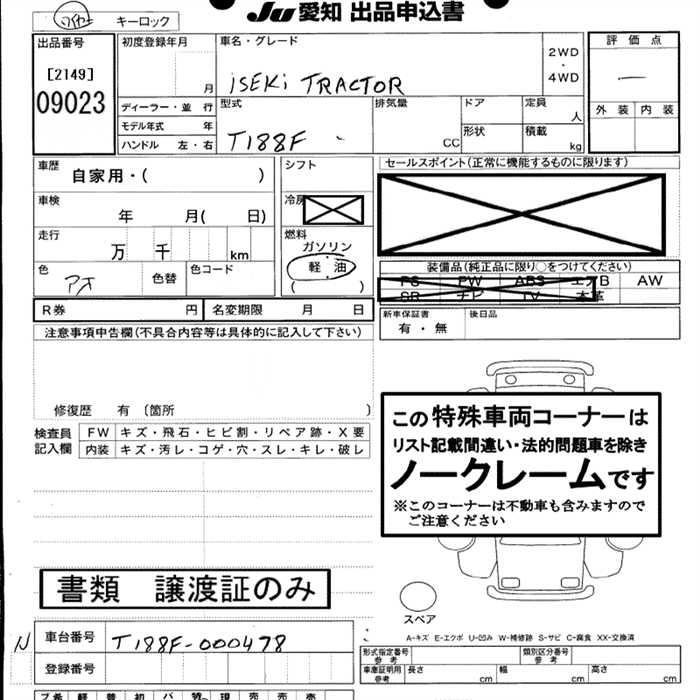 キーロック
Ju 愛知 出品申込書
出品番号
[2149]
09023
初度登録年月
月
車名・グレード
iSEKi TRACTOR
2WD
・
4WD
評価点
―
外装 内装
ディーラー・並行
モデル年式 年
ハンドル 左・右
型式
T188F
排気量
CC
ドア
形状
定員
人
積載
kg
車歴
自家用・( )
車検
年 月( 日)
走行
万 千 km
色
アオ
色替
色コード
シフト
冷房
燃料
ガソリン
軽油
( )
R券 円
名変期限 月 日
セールスポイント(正常に機能するものに限ります)
装備品(純正品に限り○をつけてください)
PS PW ABS エアB AW
SR ナビ TV 本革
新車保証書
有・無
後日品
注意事項申告欄(不具合内容等は具体的に記入して下さい)
修復歴 有〔箇所 〕
検査員
記入欄
FW キズ・飛石・ヒビ割・リペア跡・X要
内装 キズ・汚レ・コゲ・穴・スレ・キレ・破レ
この特殊車両コーナーは
リスト記載間違い・法的問題車を除き
ノークレームです
※このコーナーは不動車も含みますので
ご注意ください
書類 譲渡証のみ
スペア
A-キズ E-エクボ U-凹み W-補修跡 S-サビ C-腐食 XX-交換済
N
車台番号
T188F-000478
登録番号
形式指定番号
参考
類別区分番号
参考
車庫証明用
参考
長さ cm
幅 cm
高さ cm